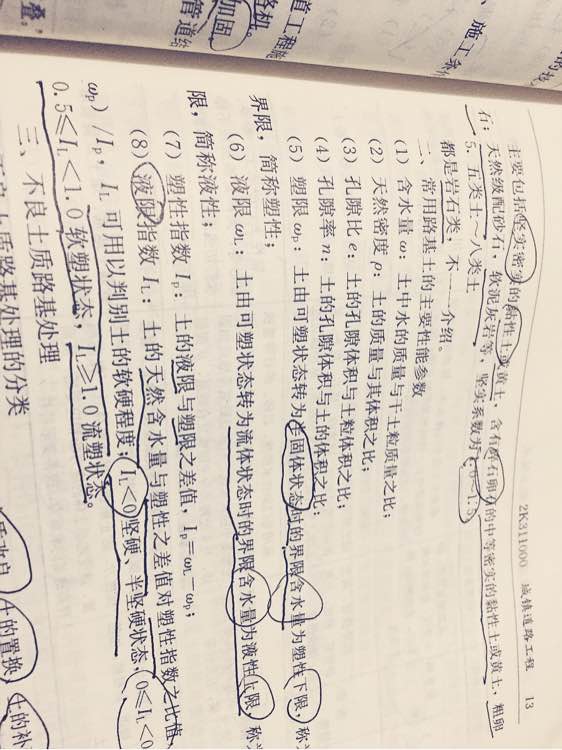 2K311000 城镇道路工程 13
主要包括坚实密实的黏性土或黄土，含有碎石卵石的中等密实的黏性土或黄土，粗卵
石；天然级配砂石，软泥灰岩等，坚实系数为
5. 五类土～八类土
都是岩石类，不一一介绍。
二、常用路基土的主要性能参数
（1）含水量ω：土中水的质量与干土粒质量之比；
（2）天然密度ρ：土的质量与其体积之比；
（3）孔隙比e：土的孔隙体积与土粒体积之比；
（4）孔隙率n：土的孔隙体积与土的体积之比；
（5）塑限ωp：土由可塑状态转为半固体状态时的界限含水量为塑性下限，称为
界限，简称塑性；
（6）液限ωL：土由可塑状态转为流体状态时的界限含水量为液性上限，称为
限，简称液性；
（7）塑性指数Ip：土的液限与塑限之差值，Ip＝ωL－ωp；
（8）液限指数IL：土的天然含水量与塑性之差值对塑性指数之比值，
ωp）/Ip，IL可用以判别土的软硬程度；IL<0坚硬、半坚硬状态，0≤IL<0
0.5≤IL<1.0软塑状态，IL≥1.0流塑状态。
三、不良土质路基处理
土质路基处理的分类
土的置换
土的补
施工
道工程施
路机。
加固
管道结
叠，